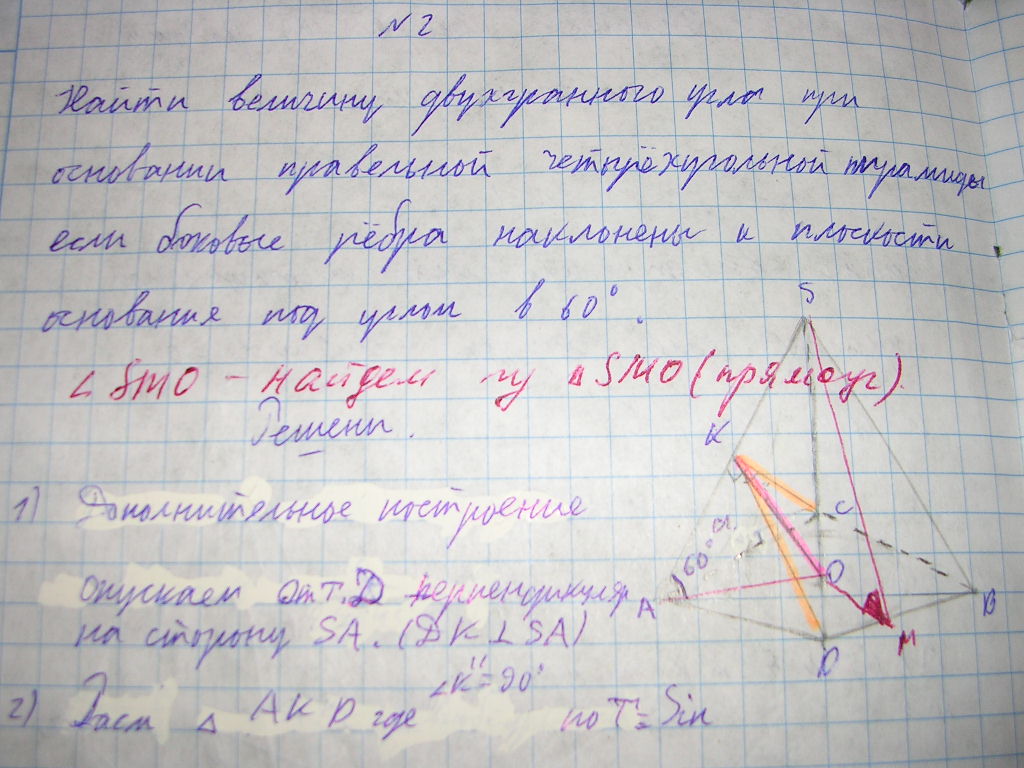 N 2
Найти величину двухгранного угла при
основании правельной четырёхугольной пирамиды
если боковые рёбра наклонены к плоскости
основания под углом в 60°.
∠ SMO – найдем из △ SMO (прямоуг).
Решени.
1) Дополнительное построение
опускаем от т. D перпендикуляр
на сторону SA. (DK ⊥ SA)
∠K = 90°
2) Расм △ AKD где по т = Sin
S
K
C
60°
O
A
B
M
D